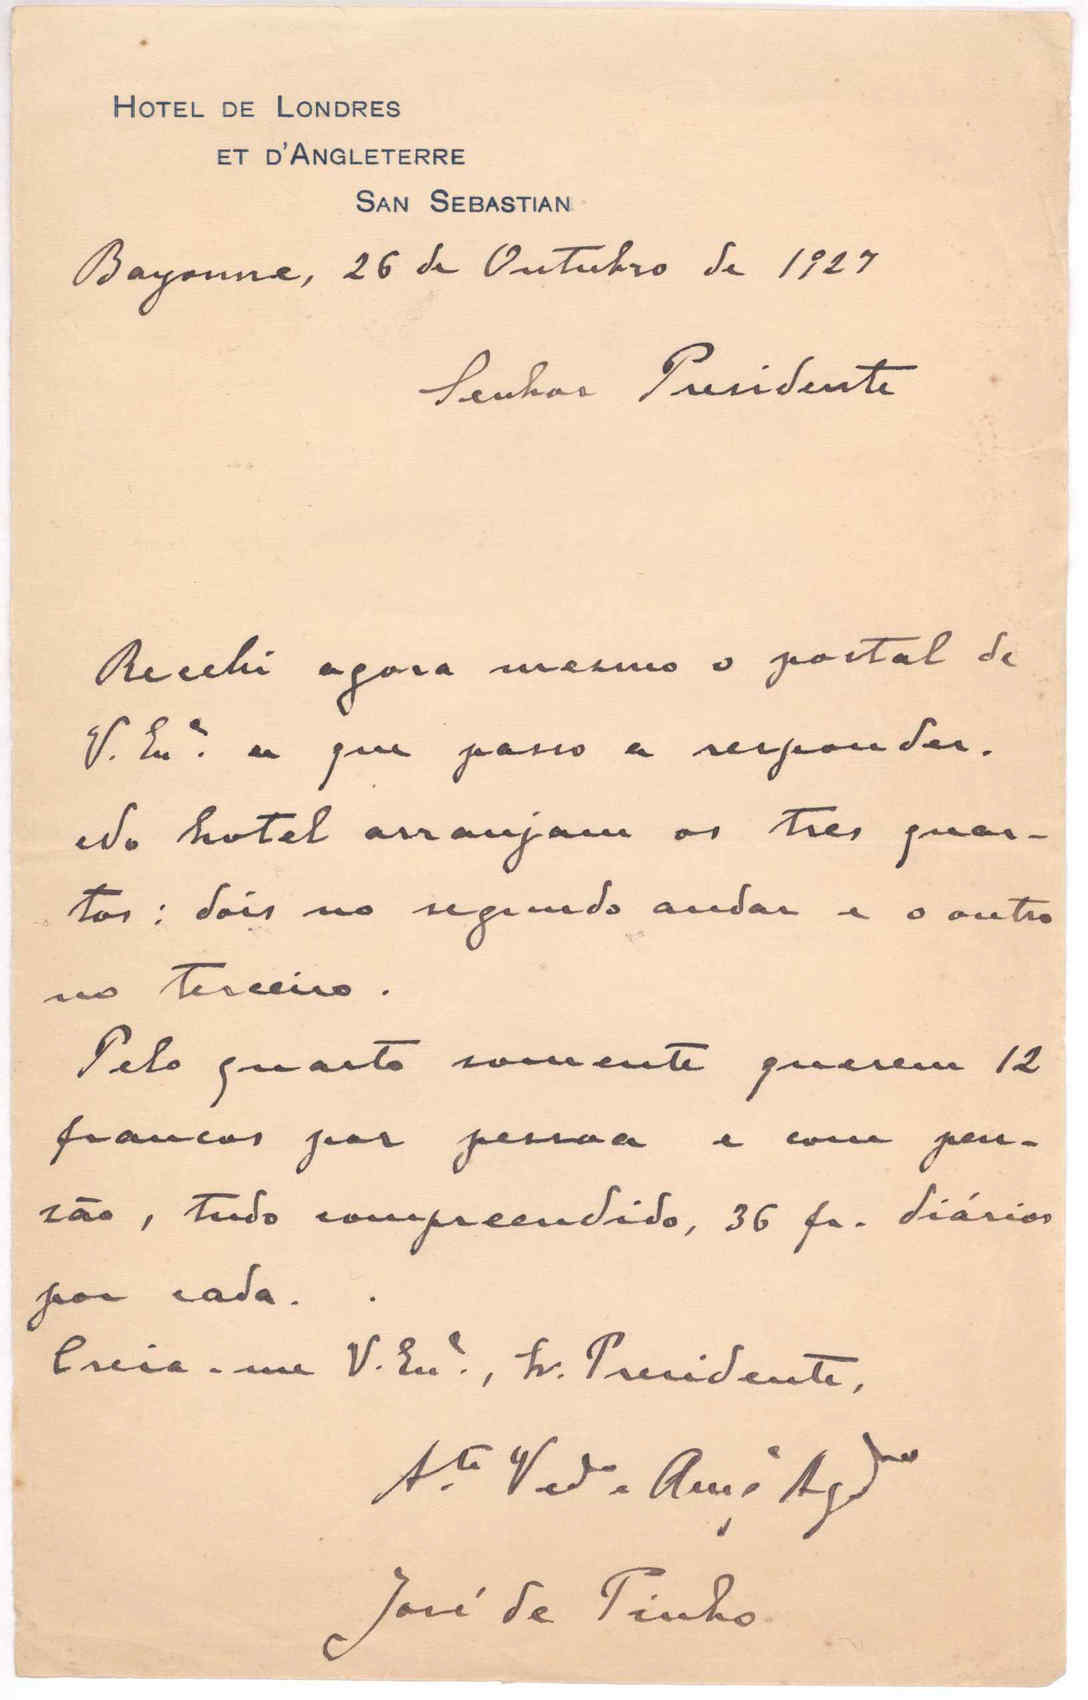 HOTEL DE LONDRES
ET D'ANGLETERRE
SAN SEBASTIAN
Bayonne, 26 de Outubro de 1927
Senhor Presidente
Recebi agora mesmo o postal de
V. Exª. a que passo a responder.
No hotel arranjam os tres quar-
tos: dois no segundo andar e o outro
no terceiro.
Pelo quarto somente querem 12
francos por pessoa e com pen-
são, tudo compreendido, 36 fr. diários
por cada.
Creia-me V. Exª., Sr. Presidente,
Atº Vedor e Amº Agdmo
José de Pinho